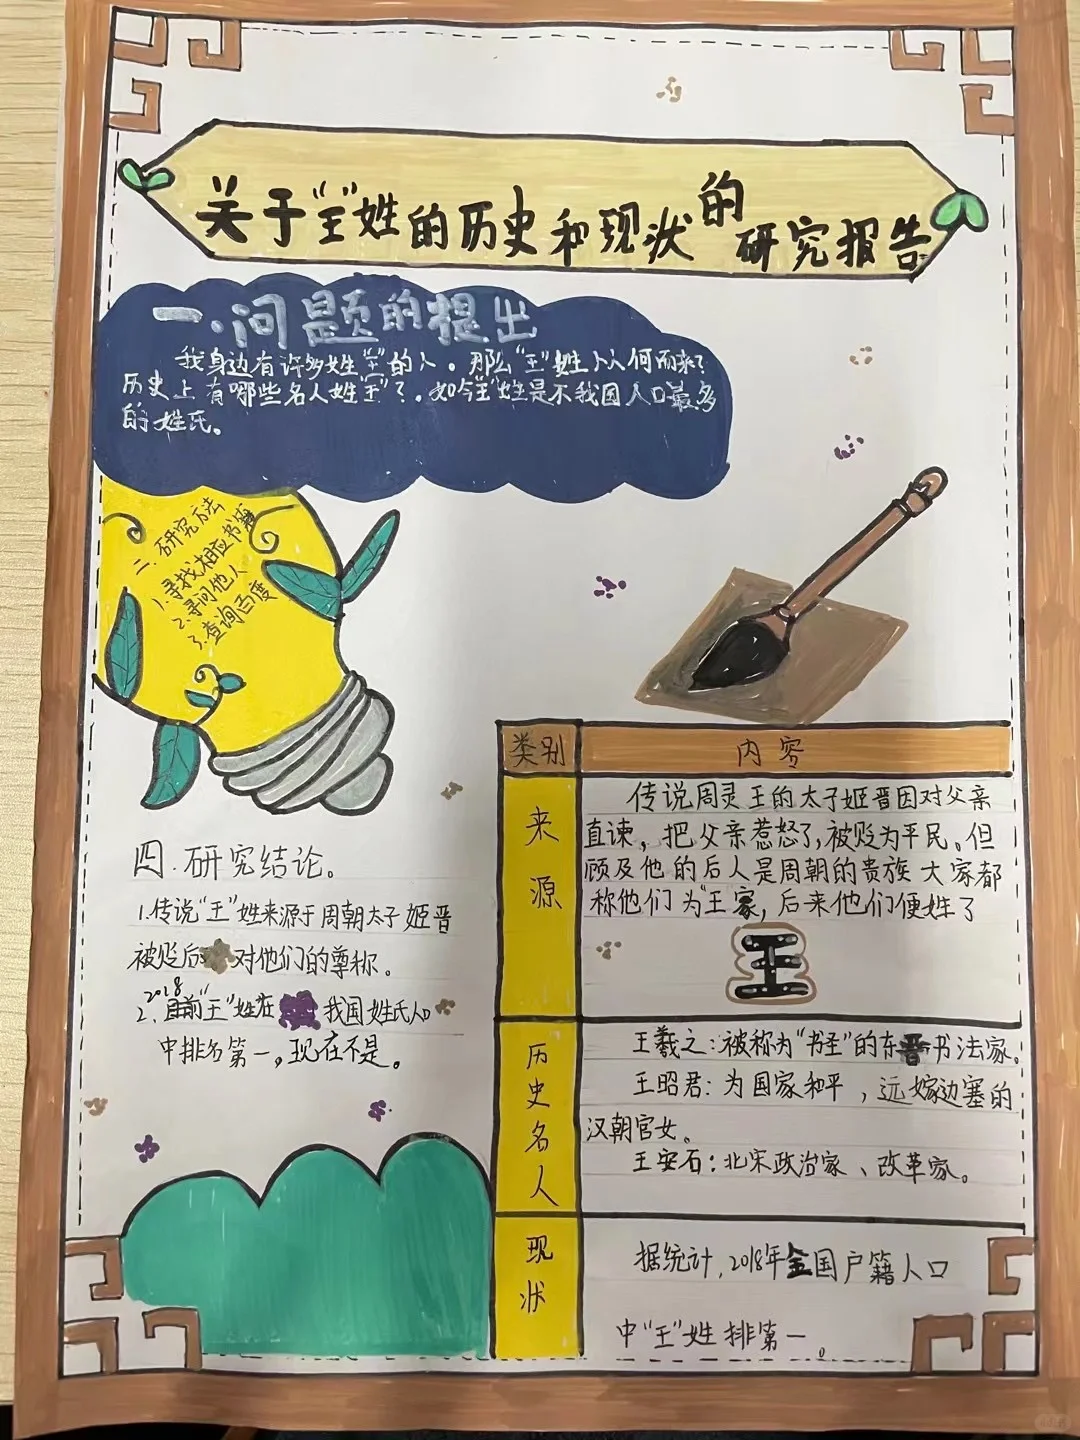 关于"王"姓的历史和现状的研究报告
一.问题的提出
我身边有许多姓"王"的人。那么"王"姓从何而来?
历史上有哪些名人姓"王"?.如今"王"姓是不我国人口最多
的姓氏。
二.研究方法
1.寻找相应书籍
2.寻问他人
3.查询百度
类别 内容
来源
传说周灵王的太子姬晋因对父亲
直谏,把父亲惹怒了,被贬为平民。但
顾及他的后人是周朝的贵族大家都
称他们为"王家,后来他们便姓了
王
历史名人
王羲之:被称为"书圣"的东晋书法家。
王昭君:为国家和平,远嫁边塞的
汉朝宫女。
王安石:北宋政治家、改革家。
现状
据统计,2018年全国户籍人口
中"王"姓排第一。
四.研究结论。
1.传说"王"姓来源于周朝太子姬晋
被贬后对他们的尊称。
2018
2.目前"王"姓在我国姓氏人口
中排名第一,现在不是。